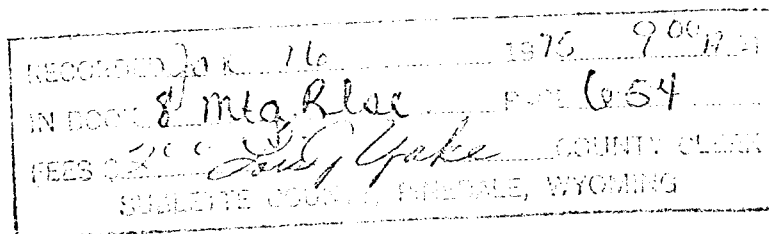 RECORDED Jan 16 1976 9 00 A M
IN BOOK 8 Mtg Rlse PAGE 654
FEES $ 2 00 COUNTY CLERK
SUBLETTE COUNTY, PINEDALE, WYOMING